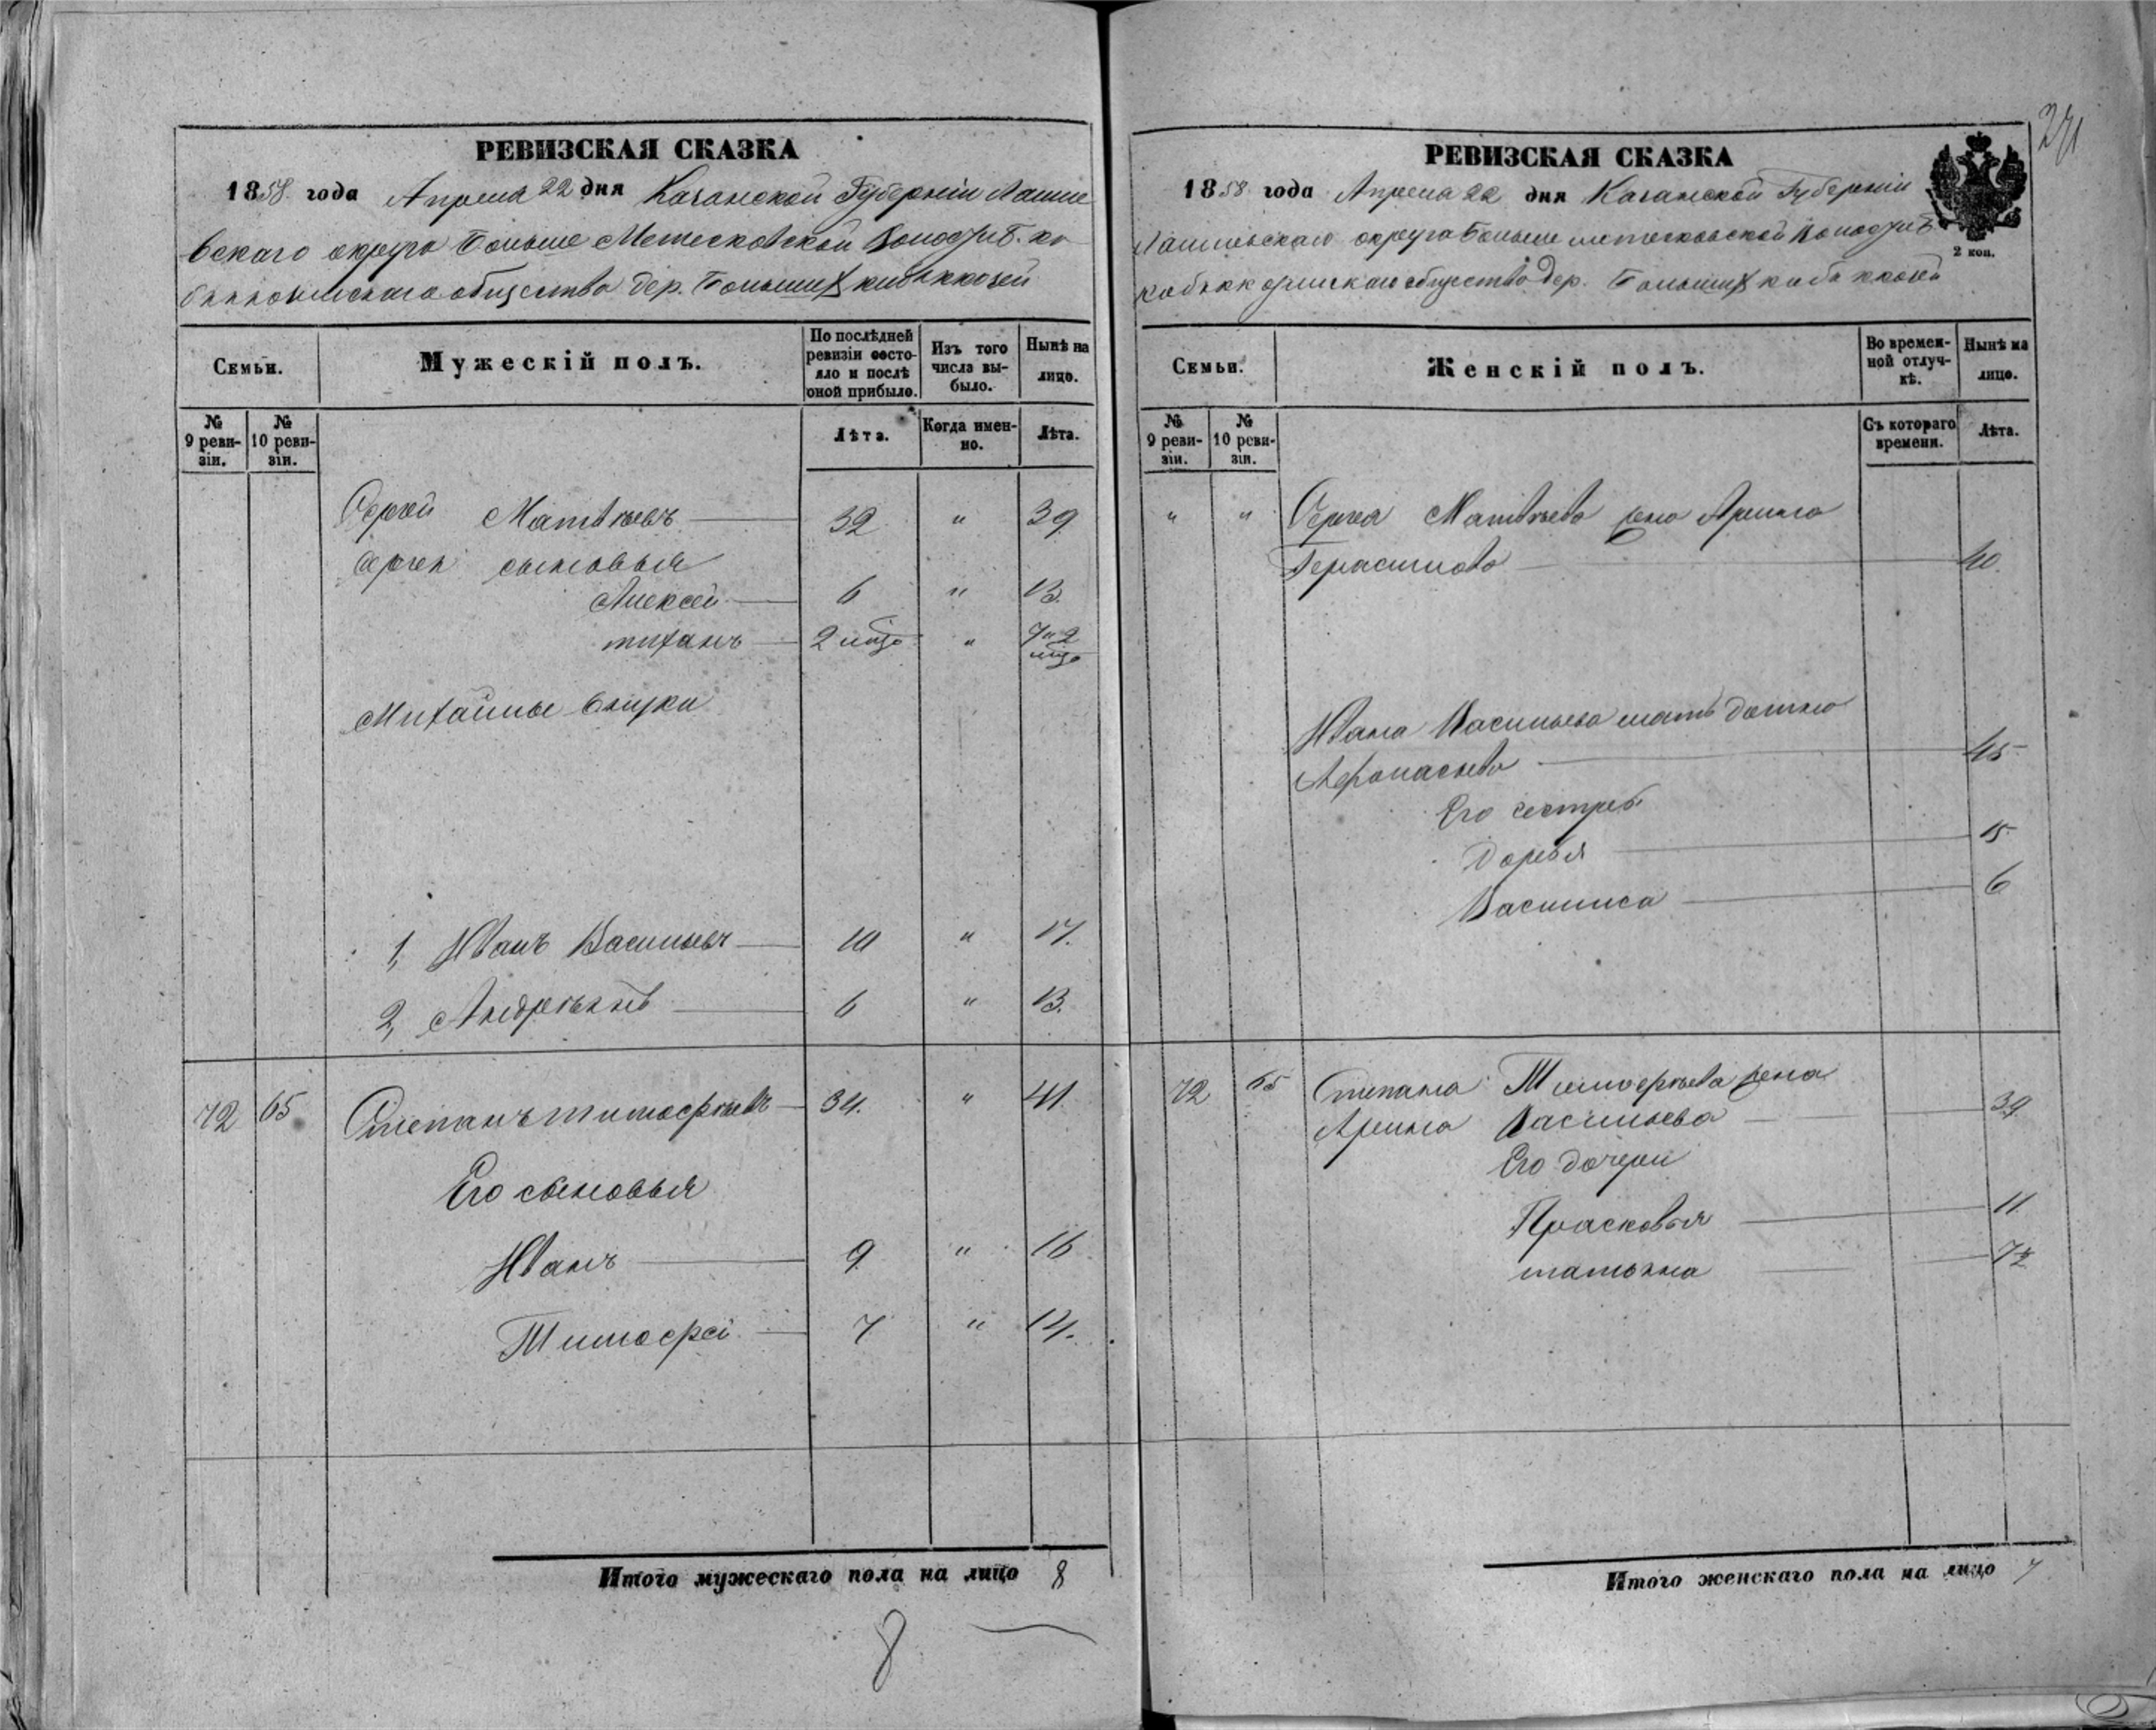 РЕВИЗСКАЯ СКАЗКА
1858 года Апреля 22 дня Казанской Губерніи Лаише
вскаго округа Больше Метесковской Волости
общества дер. Большихъ
Семьи.
Мужескій полъ.
По послѣдней ревизіи состояло и послѣ оной прибыло.
Изъ того числа выбыло.
Нынѣ на лицо.
№ 9 ревизіи.
№ 10 ревизіи.
Лѣта.
Когда именно.
Лѣта.
Сергей Матвѣевъ 32 " 39
Сергея сыновья
Алексей 6 " 13.
2
Михайлы внуки
1, Иванъ Васильевъ 10 " 17.
2, Андреянъ 6 " 13.
72 65 Степанъ тимофѣевъ 34. " 41
Его сыновья
Иванъ 9 " 16
Тимофей 7 " 14.
Итого мужескаго пола на лицо 8
8
РЕВИЗСКАЯ СКАЗКА
1858 года Апреля 22 дня Казанской Губерніи
Лаишевскаго округа Больше метесковской Волости
общества дер. Большихъ
2 коп.
Семьи.
Женскій полъ.
Во временной отлучкѣ.
Нынѣ на лицо.
№ 9 ревизіи.
№ 10 ревизіи.
Съ котораго времени.
Лѣта.
" " Сергея Матвѣева жена Арина
Герасимова 40.
Ивана Васильева мать
Афонасьева 45
Его сестры
Дарья 15
Василиса 6
72 65 Степана Тимофѣева жена
Арина Васильева 39
Его дочери
Прасковья 11
татьяна
Итого женскаго пола на лицо 7